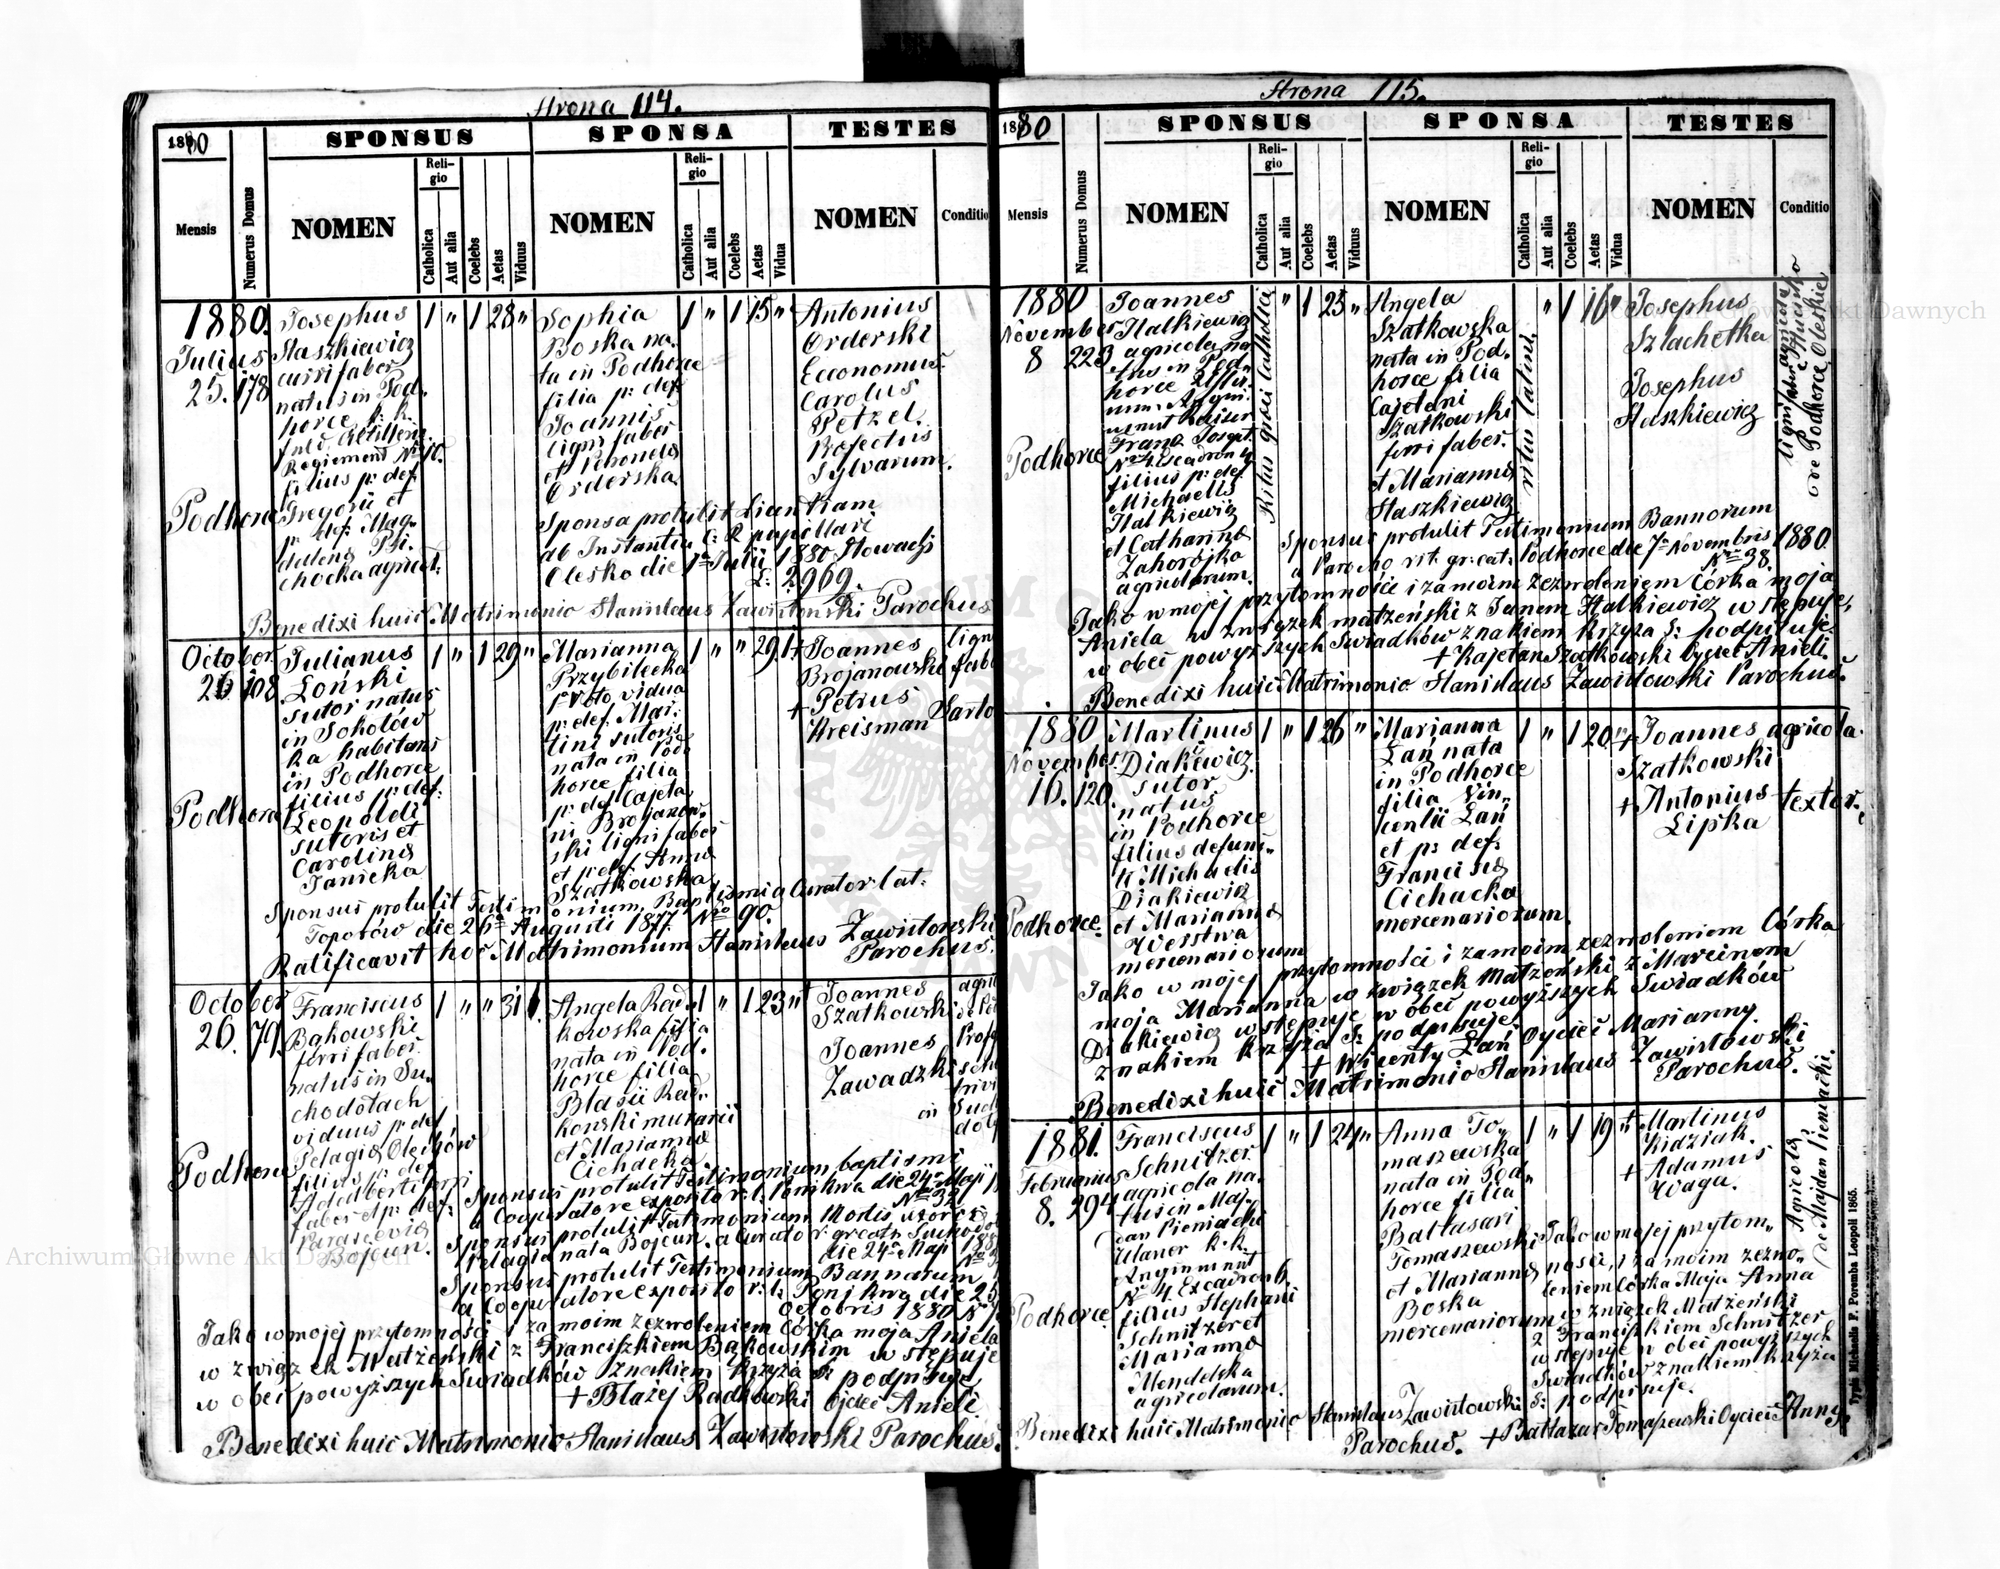 Strona 114.
1880
SPONSUS
SPONSA
TESTES
Mensis
Numerus Domus
NOMEN
Religio
Catholica
Aut alia
Coelebs
Aetas
Viduus
NOMEN
Religio
Catholica
Aut alia
Coelebs
Aetas
Vidua
NOMEN
Conditio
1880.
Julius
25. 178
Podhorce
Josephus
Staszkiewicz
curri faber
natus in Pod-
horce k: k.
Regiement No 10.
filius p: def.
Gregorii et
p: def: Mag-
dalena
1 " 1 28 "
Sophia
Boska na-
ta in Podhorce
filia p: def.
Joannis
ligni faber
et Petronela
Orderska
1 " 1 15 "
Antonius
Orderski
Economus.
Carolus
Petzel.
Sylvarum.
Sponsa protulit
ab Instantia C: R pupillari
Olesko die 1a Julii 1880
L: 2969.
Benedixi huic Matrimonio Stanislaus Zawistowski Parochus
October
26 108
Podhorce
Julianus
Łoński
sutor natus
in Sokołów-
ka habitans
in Podhorce
filius p: def:
Leopoldi
sutoris et
Carolina
Janicka
1 " 1 29 "
Marianna
Przybilecka
1 Voto vidua
p: def. Mar-
tini sutoris
nata in Pod-
horce filia
p: def Cajeta-
ni Brojanow-
ski ligni faber
et p: def. Anna
Szatkowska.
1 " " 29 1
+ Joannes
Brojanowski
+ Petrus
Kreisman
ligni
fabe
Sarto
Sponsus protulit Testimonium Baptismi a Curator lat:
Toporów die 26a Augusti 1877 No 90.
Ratificavit hoc Matrimonium Stanislaus Zawistowski
Parochus.
October
26. 79.
Podhorce
Franciscus
Bąkowski
ferri faber
natus in Su-
chodołach
viduus p: def
Pelagia
filius p: def
Adalberti ferri
faber et p: def:
Parascevia
Bojcun.
1 " " 31 1.
Angela Rad-
kowska filia
nata in Pod-
horce filia
Blasii Rad-
kowski murarii
et Marianna
Cichacka
1 " 1 23 "
Joannes
Szatkowski
Joannes
Zawadzki
Sponsus protulit Testimonium baptismi
a Cooperatore exposito r. l. Ponikwa die 24a Maji
Sponsus protulit Testimonium Mortis uxoris
Pelagia nata Bojcun. a Curator gr cath Suchodoł
die 24a Maji 188
Sponsus protulit Testimonium Bannorum
a Cooperatore exposito r: l: Ponikwa die 25
Octobris 1880 N
Jako w mojej przytomności i za moim zezwoleniem Córka moja Aniela
w związek Małżeński z Franciszkiem Bąkowskim wstępuje
w obec powyższych Świadków znakiem Krzyża S: podpisuje
+ Błażej Radkowski Ojciec Anieli
Benedixi huic Matrimonio Stanislaus Zawistowski Parochus.
Strona 115.
1880
SPONSUS
SPONSA
TESTES
Mensis
Numerus Domus
NOMEN
Religio
Catholica
Aut alia
Coelebs
Aetas
Viduus
NOMEN
Religio
Catholica
Aut alia
Coelebs
Aetas
Vidua
NOMEN
Conditio
1880
November
8 223
Podhorce
Joannes
Halkiewicz
agricola na-
tus in Pod-
horce
Kaiser
Franz Joseph
No 4. Escadron
filius p: def
Michaelis
Halkiewicz
et Catharina
Zahorojka
agricolarum.
Ritus graeci Catholica
" 1 25 "
Angela
Szatkowska
nata in Pod-
horce filia
Cajetani
Szatkowski
ferri faber.
et Marianna
Staszkiewicz
ritus latini.
" 1 16 "
Josephus
Szlachetka
Josephus
Staszkiewicz
Sponsus protulit Testimonium Bannorum
a Parocho rit. gr: cat: Podhorce die 7a Novembris 1880
Nr 38.
Jako w mojej przytomności i za moim zezwoleniem Córka moja
Aniela w związek małżeński z Janem Halkiewicz wstępuje,
w obec powyższych Świadków znakiem Krzyża S: podpisuje.
+ Kajetan Szatkowski Ojciec Anieli.
Benedixi huic Matrimonio Stanislaus Zawistowski Parochus.
1880
November
16. 120.
Podhorce.
Martinus
Diakiewicz
sutor
natus
in Podhorce
filius defunc-
ti Michaelis
Diakiewicz
et Marianna
mercenariorum
1 " 1 26 "
Marianna
Łań nata
in Podhorce
filia Vin-
centii Łań
et p: def.
Francisca
Cichacka
mercenariorum.
1 " 1 20 "
+ Joannes
Szatkowski
+ Antonius
Lipka
agricola.
textor.
Jako w mojej przytomności i za moim zezwoleniem Córka
moja Marianna w związek Małżeński z Marcinem
Diakiewicz wstępuje w obec powyższych Świadków
znakiem Krzyża S: podpisuje.
+ Wicenty Łań Oyciec Marianny.
Benedixi huic Matrimonio Stanislaus Zawistowski
Parochus.
1881.
Februarius
8. 294
Podhorce
Franciscus
Schnitzer
agricola na-
tus in Maj-
dan Pieniacki
Ulaner k. k.
No 4. Escadron 6.
filius Stephani
Schnitzer et
Marianna
Mendelska
agricolarum.
1 " 1 24 "
Anna To-
maszewska
nata in Pod-
horce filia
Baltasari
Tomaszewski
et Marianna
Boska
mercenariorum
1 " 1 19 "
+ Martinus
Kidziak.
+ Adamus
Waga.
Agricola,
de Majdan Pieniacki.
Jako w mojej przytom-
ności, i za moim zezwo-
leniem Córka Moja Anna
w związek Małżeński
z Franciszkiem Schnitzer
wstępuje w obec powyższych
Świadków znakiem Krzyża
S: podpisuje.
Benedixi huic Matrimonio Stanislaus Zawistowski
Parochus. + Baltazar Tomaszewski Oyciec Anny.
Typis Michaelis F. Poremba Leopoli 1865.
Archiwum Główne Akt Dawnych
Archiwum Główne Akt Dawnych